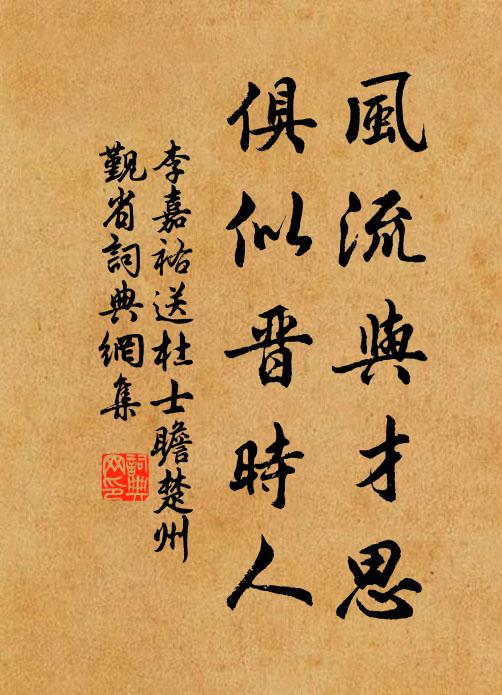 風流與才思
俱似晋時人
李嘉祐送杜士瞻楚州
觐省詞典網集
詞典网印